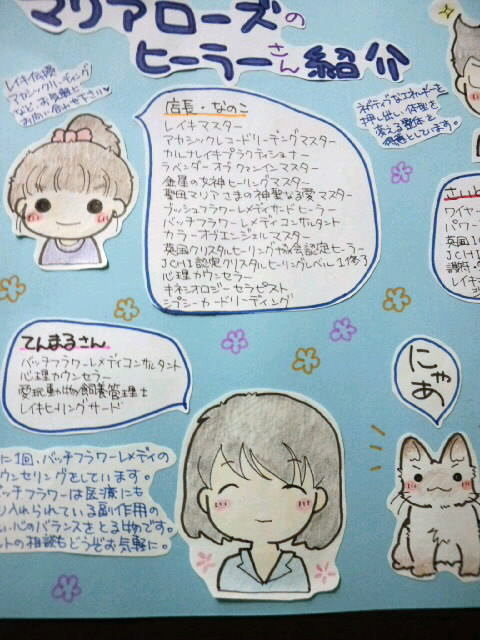 マリアローズの
ヒーラーさん紹介
レイキ伝授
アカシックリーディング
など、お気軽に
お問い合わせ下さい♥
店長・なのこ
レイキマスター
アカシックレコードリーディングマスター
カルナレイキプラクティショナー
ラベンダーオラクンインマスター
金星の女神ヒーリングマスター
聖母マリアさまの神聖なる愛マスター
ブッシュフラワーレメディサードヒーラー
バッチフラワーレメディコンサルタント
カラーオブエンジェルマスター
英国クリスタルヒーリング協会認定ヒーラー
JCHI認定クリスタルヒーリングレベル1修了
心理カウンセラー
キネシオロジーセラピスト
ジプシーカードリーディング
ネガティブなエネルギーを
押し出し、体調を
整える整体を
得意としています。
さいと
ワイヤー
パワー
英国
JCHI
レイキ
てんまるさん
バッチフラワーレメディコンサルタント
心理カウンセラー
愛玩動物飼養管理士
レイキヒーリングサード
に1回、バッチフラワーレメディの
ウンセリングをしています。
ッチフラワーは医療にも
り入れられている副作用の
い心のバランスをとる助けです。
ットの相談もどうぞお気軽に。
にゃあ